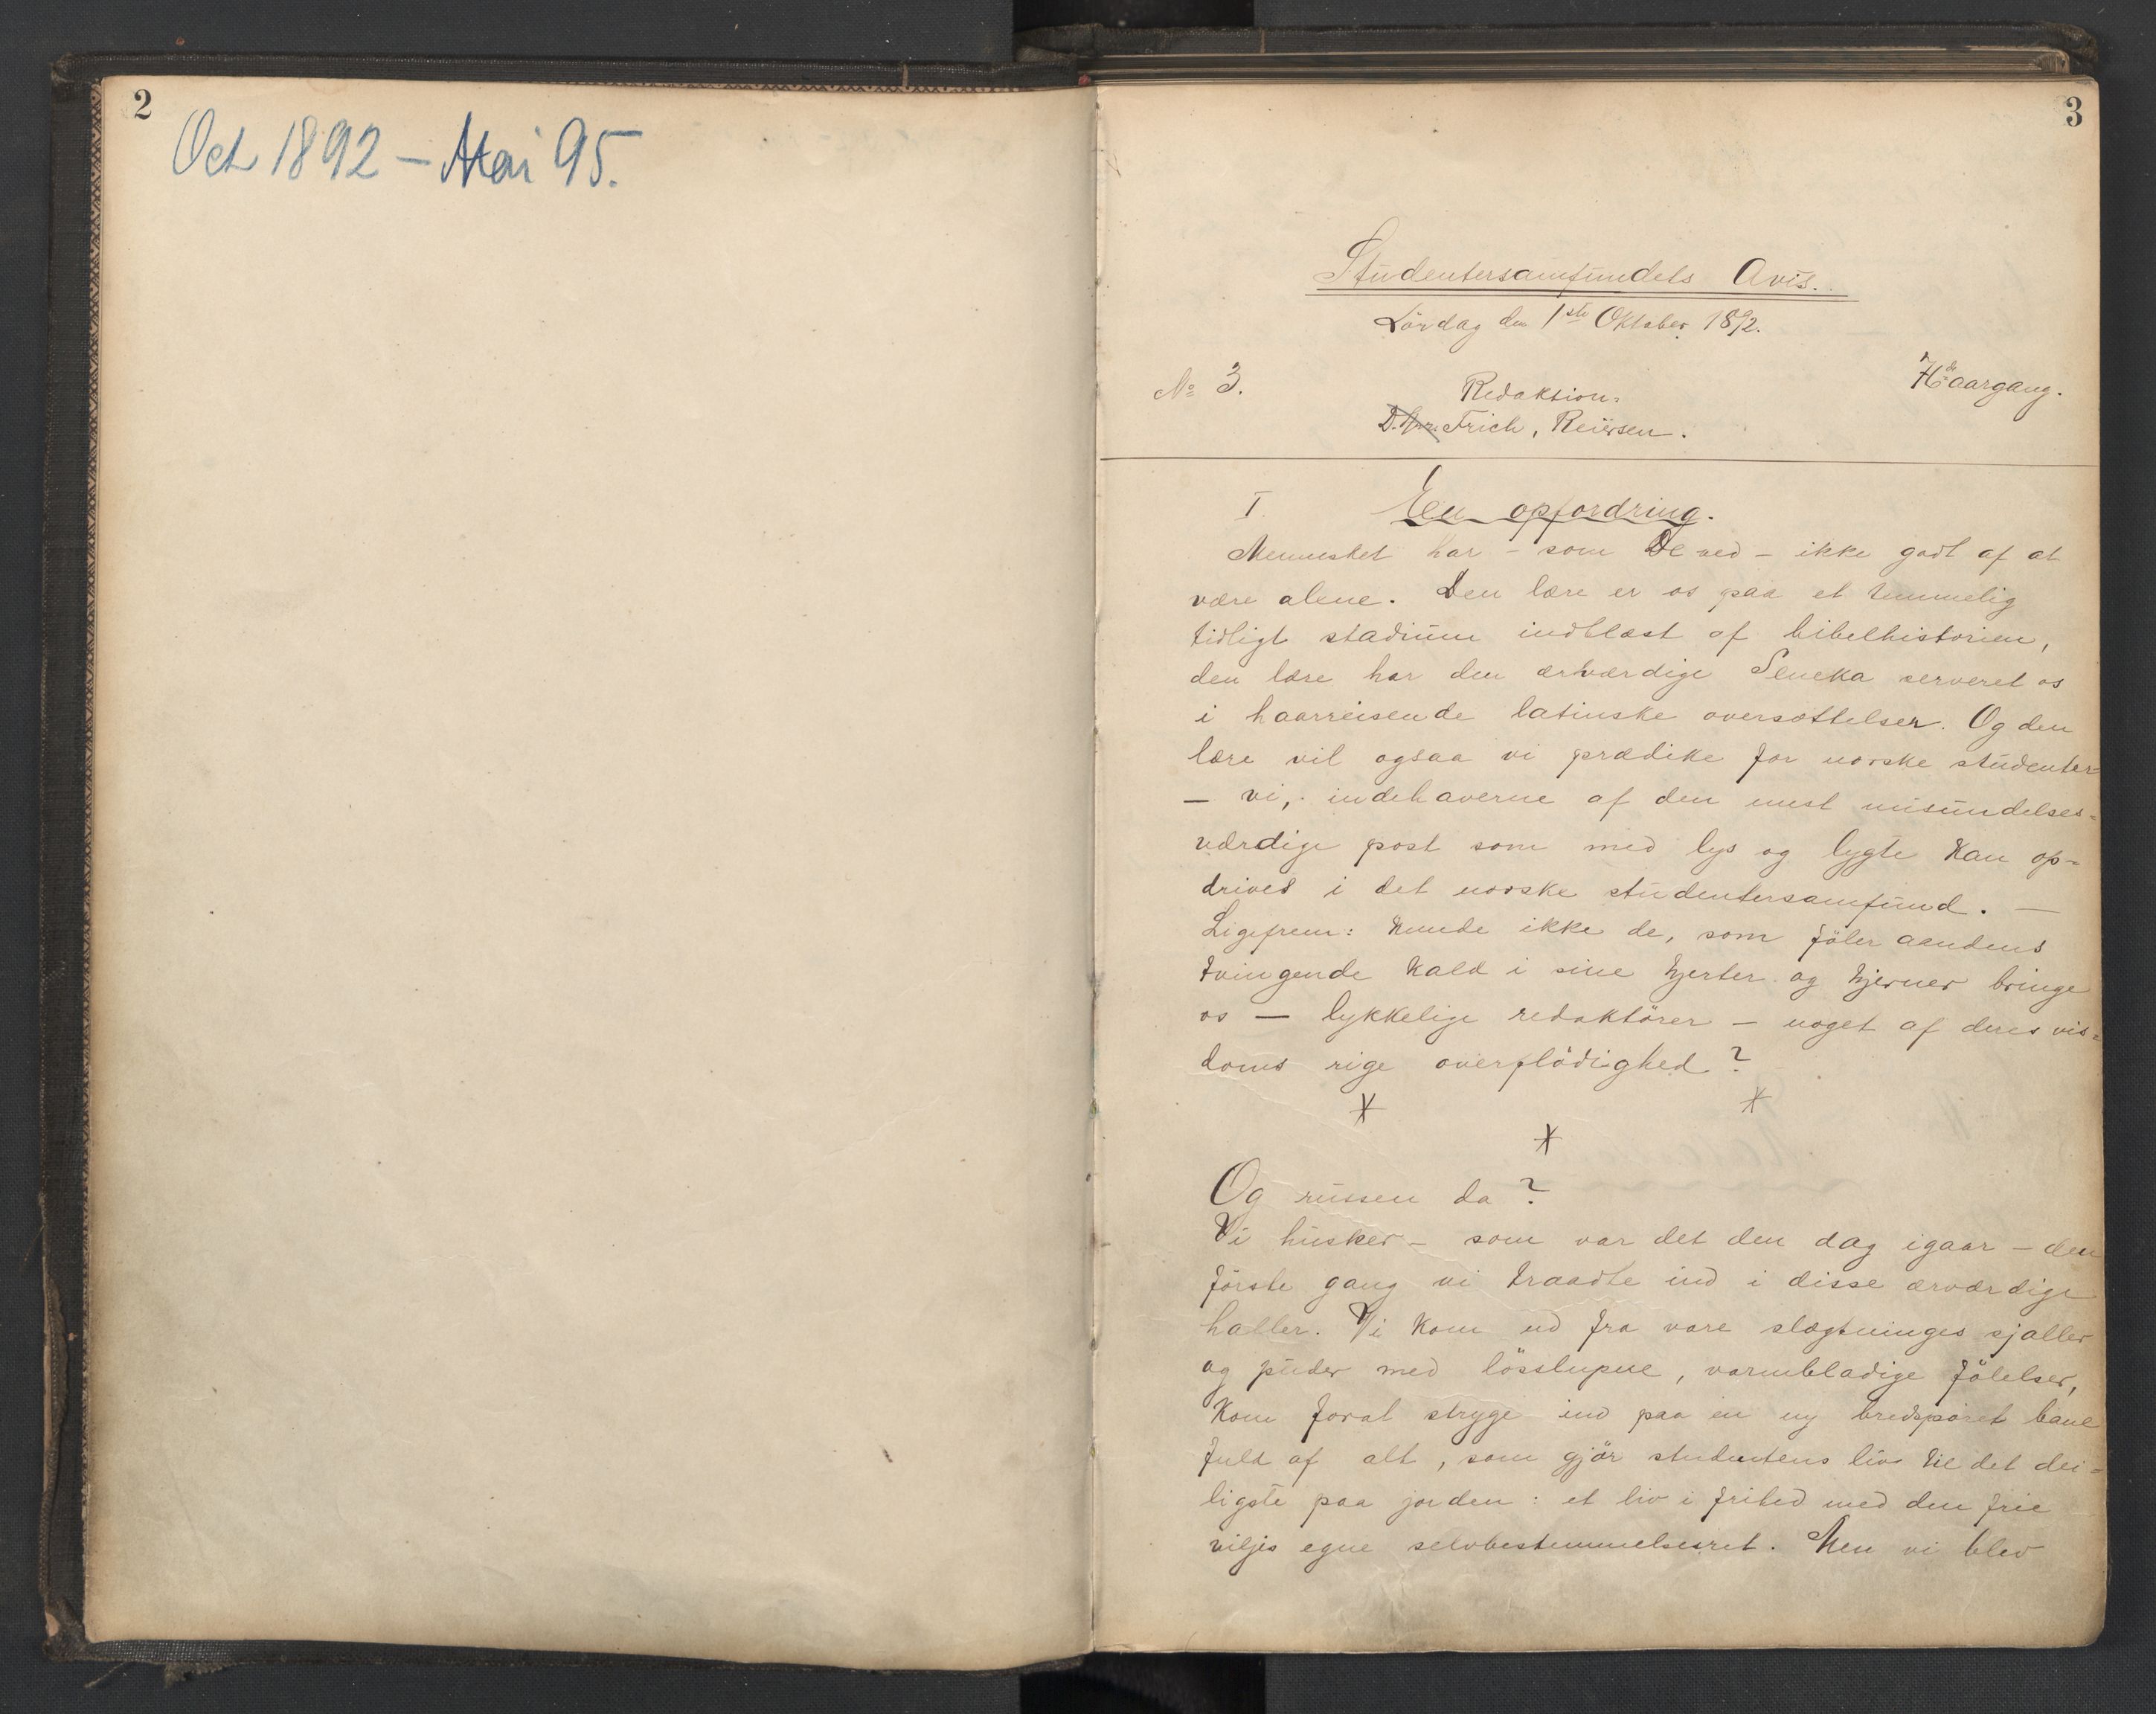 2
Oct 1892 – Mai 95.
3
Studentersamfundets Avis.
Lördag den 1ste Oktober 1892.
No 3.
Redaktion:
aargang.
Frich, Reiersen.
I. En opfordring.
Mennesket har – som De ved – ikke godt af at
være alene. Den lære er os paa et temmelig
tidligt stadium indblæst af bibelhistorien,
den lære har den ærværdige Seneka serveret os
i haarreisende latinske oversættelser. Og den
lære vil ogsaa vi prædike for norske studenter
– vi, indehaverne af den mest misundelses-
værdige post som med lys og lygte kan op-
drives i det norske studentersamfund. –
Ligefrem: Kunde ikke de, som föler aandens
tvingende kald i sine hjerter og hjerner bringe
os – lykkelige redaktörer – noget af deres vis-
doms rige overflödighed?
* *
*
Og russen da?
Vi husker – som var det den dag igaar – den
förste gang vi traadte ind i disse ærværdige
haller. Vi kom ud fra vore slægtninges sjaller
og puder med lösslupne, varmblodige fölelser,
kom forat stryge ind paa en ny bredsporet bane
fuld af alt, som gjör studentens liv til det dei-
ligste paa jorden: et liv i frihed med den frie
viljes egne selvbestemmelsesret. Men vi blev